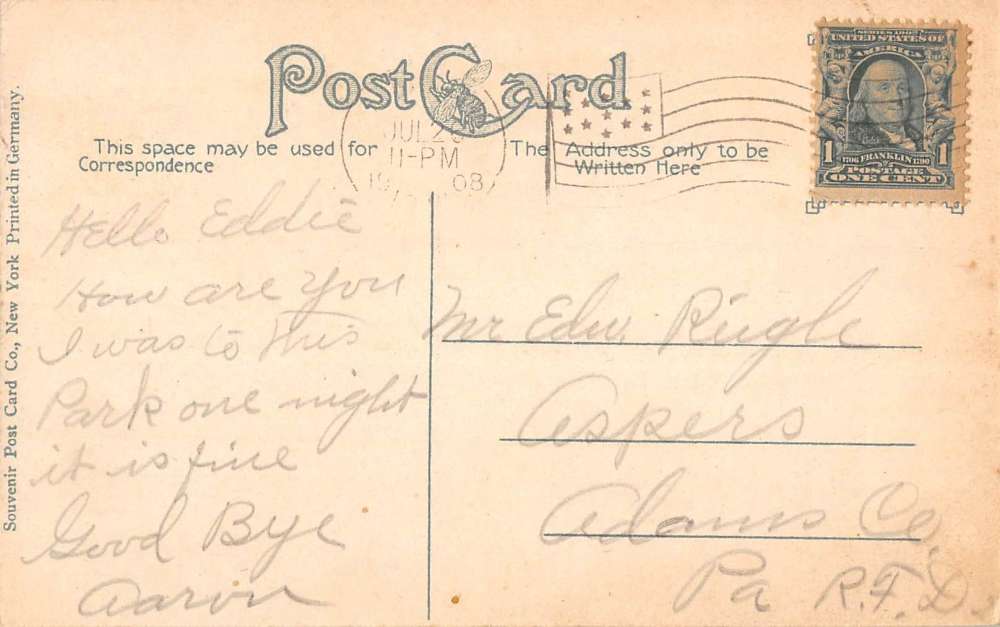 Post Card
This space may be used for
Correspondence
The Address only to be
Written Here
JUL 2
11-PM
1908
SERIES 1902
UNITED STATES OF
AMERICA
1 1
1706 FRANKLIN 1790
POSTAGE
ONE CENT
Souvenir Post Card Co., New York Printed in Germany.
Hello Eddie
How are you
I was to this
Park one night
it is fine
Good Bye
Aaron
Mr Edw. Rugle
Aspers
Adams Co
Pa R.F.D.